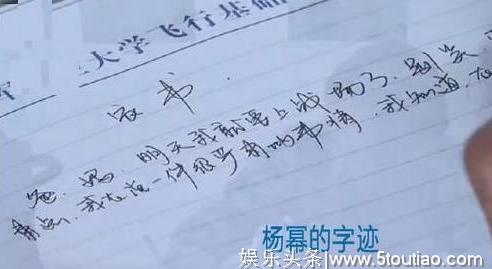 大学飞行基础
家书
爸、妈、明天我就要上战场了、别哭、
我在做一件很 的事情、我知道、在
杨幂的字迹
娱乐头条/www.5toutiao.com/